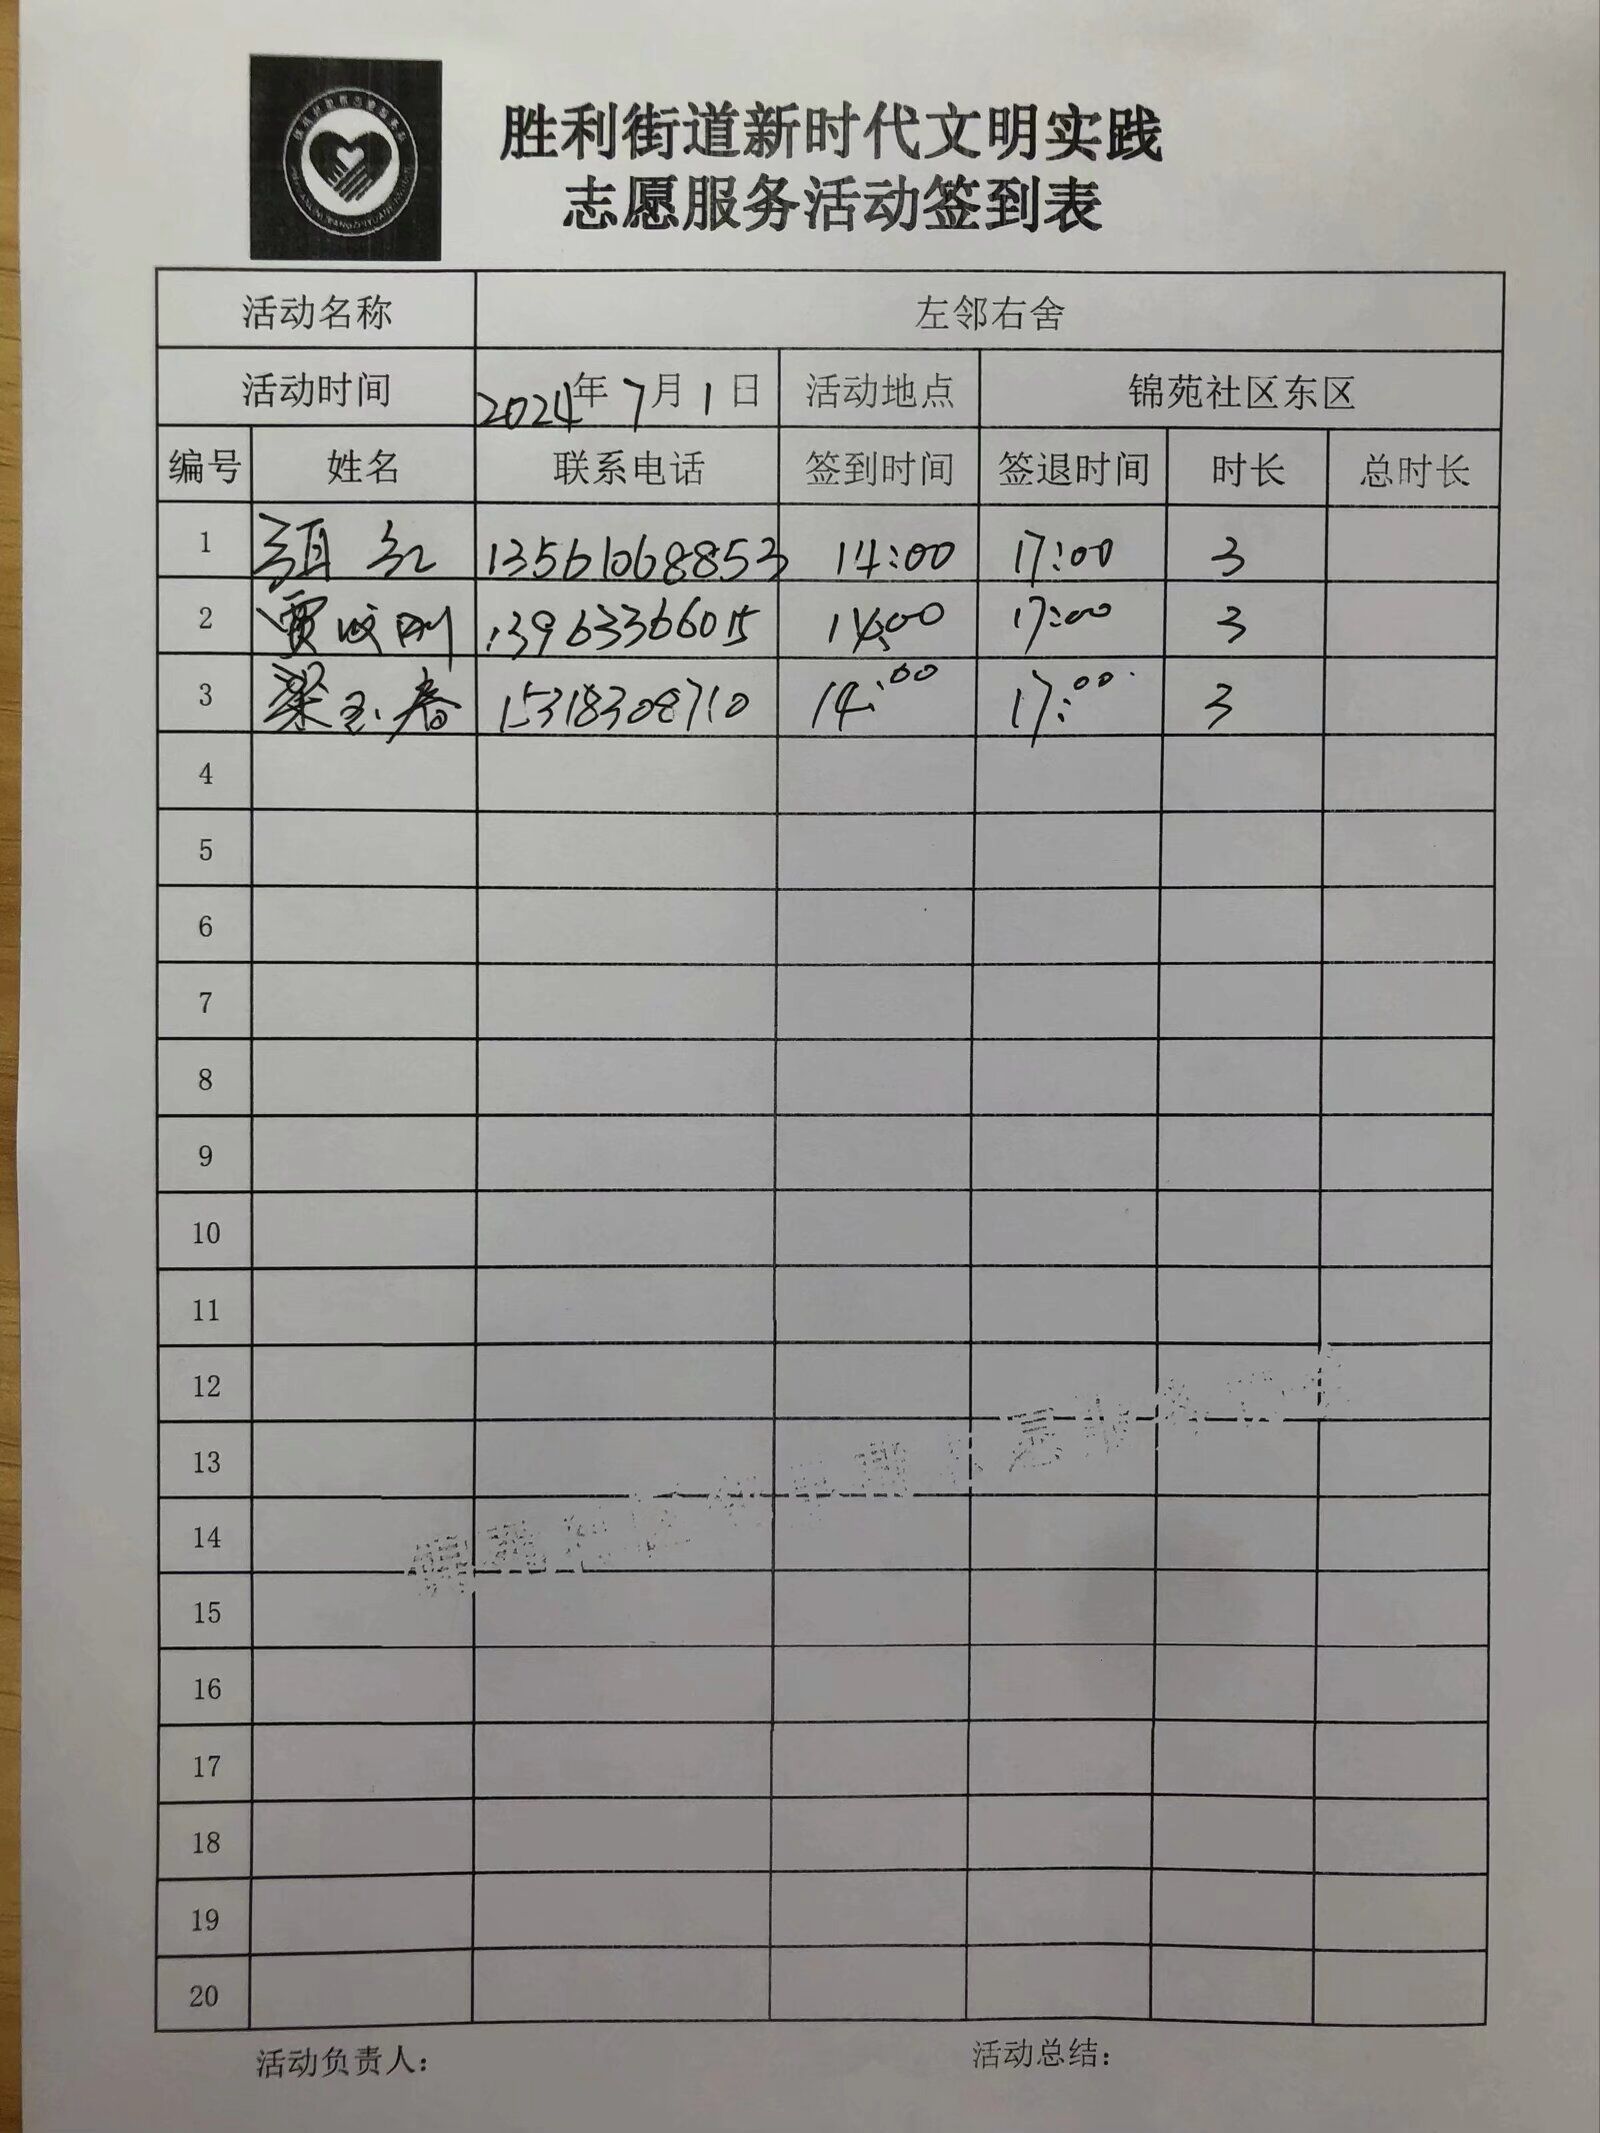 胜利街道新时代文明实践
志愿服务活动签到表
活动名称 左邻右舍
活动时间 2024年7月1日 活动地点 锦苑社区东区
编号 姓名 联系电话 签到时间 签退时间 时长 总时长
1 红 13561068853 14:00 17:00 3
2 贾 刚 13963366015 14:00 17:00 3
3 梁玉春 15318308710 14:00 17:00 3
4
5
6
7
8
9
10
11
12
13
14
15
16
17
18
19
20
活动负责人： 活动总结：